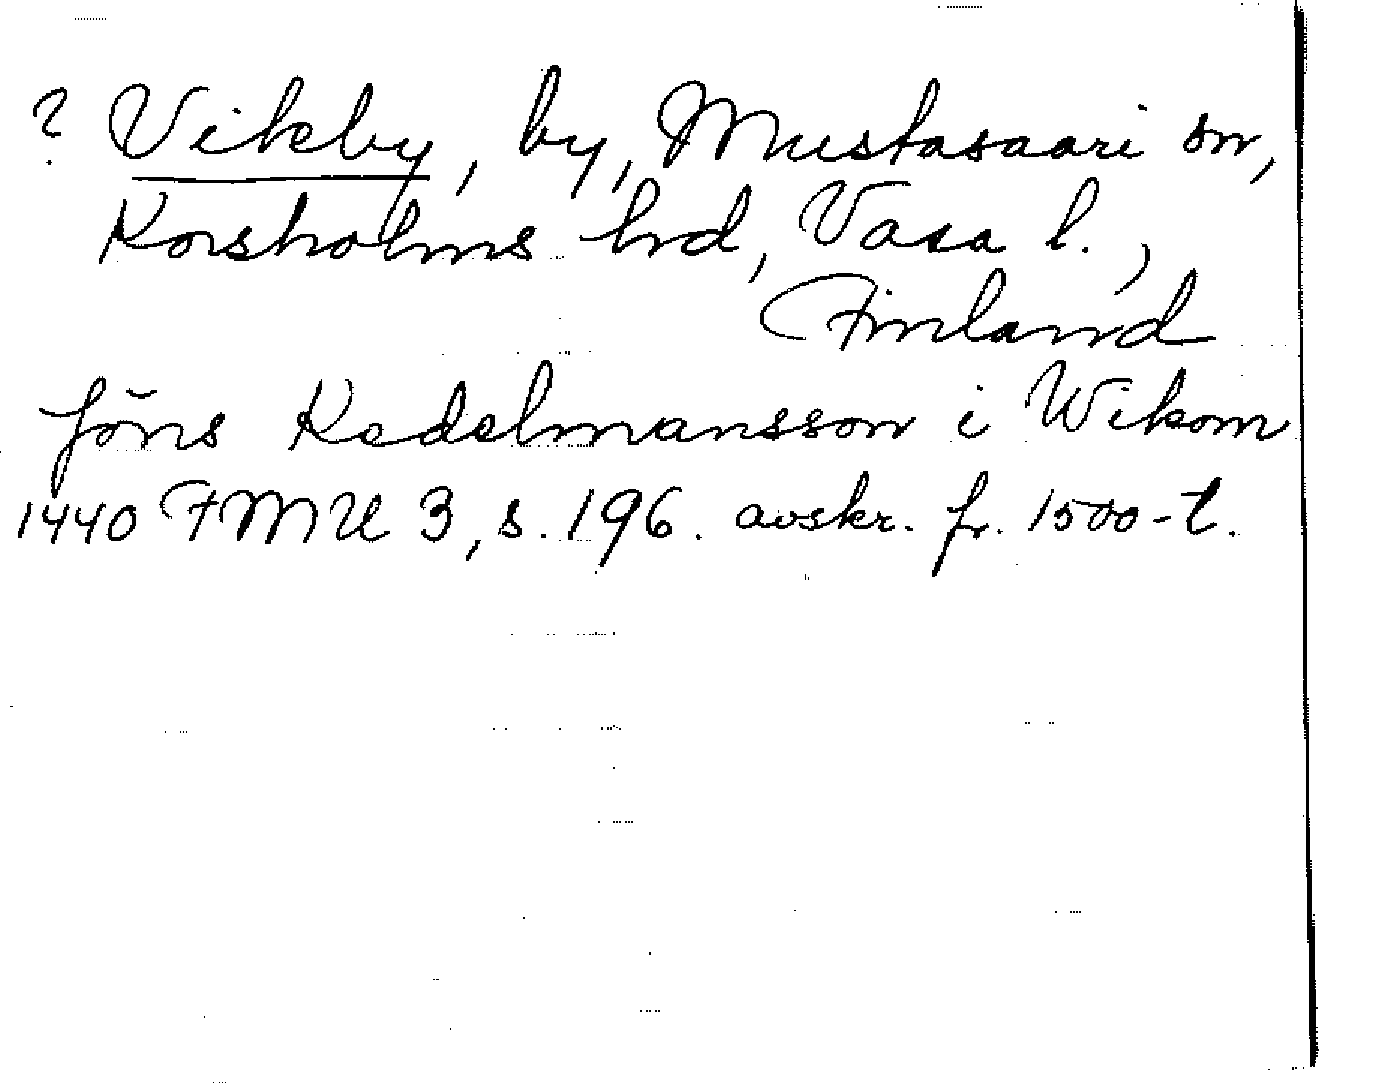 ? Vikby, by, Mustasaari sn,
Korsholms hrd, Vasa l.,
Finland
Jöns Kedelmansson i Wikom
1440 FMU 3, s. 196. avskr. fr. 1500-t.